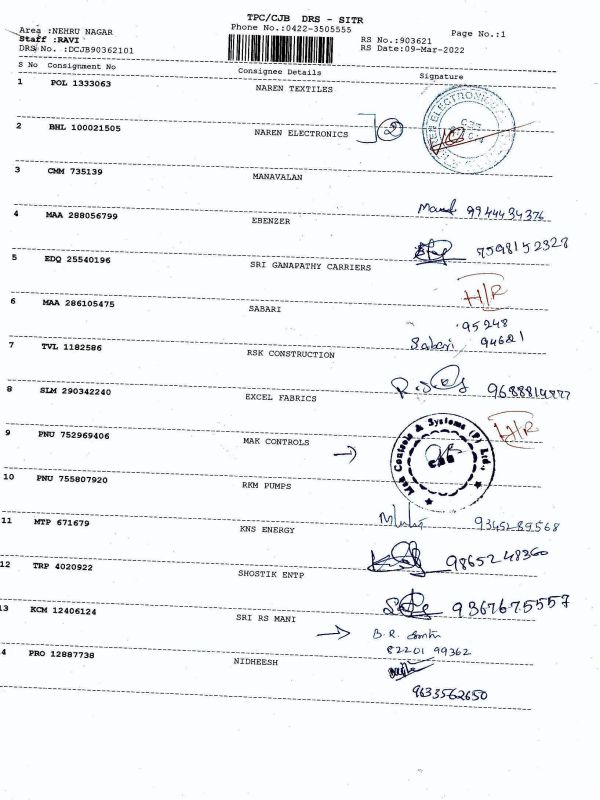 TPC/CJB DRS - SITR
Area :NEHRU NAGAR Phone No.:0422-3505555 Page No.:1
Staff :RAVI RS No.:903621
DRS No. :DCJB90362101 RS Date:09-Mar-2022
S No Consignment No Consignee Details Signature
1 POL 1333063 NAREN TEXTILES
2 BHL 100021505 NAREN ELECTRONICS 2
3 CMM 735139 MANAVALAN
9944434376
4 MAA 288056799 EBENZER
7598152328
5 EDQ 25540196 SRI GANAPATHY CARRIERS
H/R
6 MAA 286105475 SABARI
95248
Sabari 94621
7 TVL 1182586 RSK CONSTRUCTION
8 SLM 290342240 EXCEL FABRICS
H/R
9 PNU 752969406 MAK CONTROLS
Mak Controls & Systems (P) Ltd.,
10 PNU 755807920 RKM PUMPS
9345289568
11 MTP 671679 KNS ENERGY
9865248360
12 TRP 4020922 SHOSTIK ENTP
9367675557
13 KCM 12406124 SRI RS MANI
B.R.
82201 99362
4 PRO 12887738 NIDHEESH
9633562650